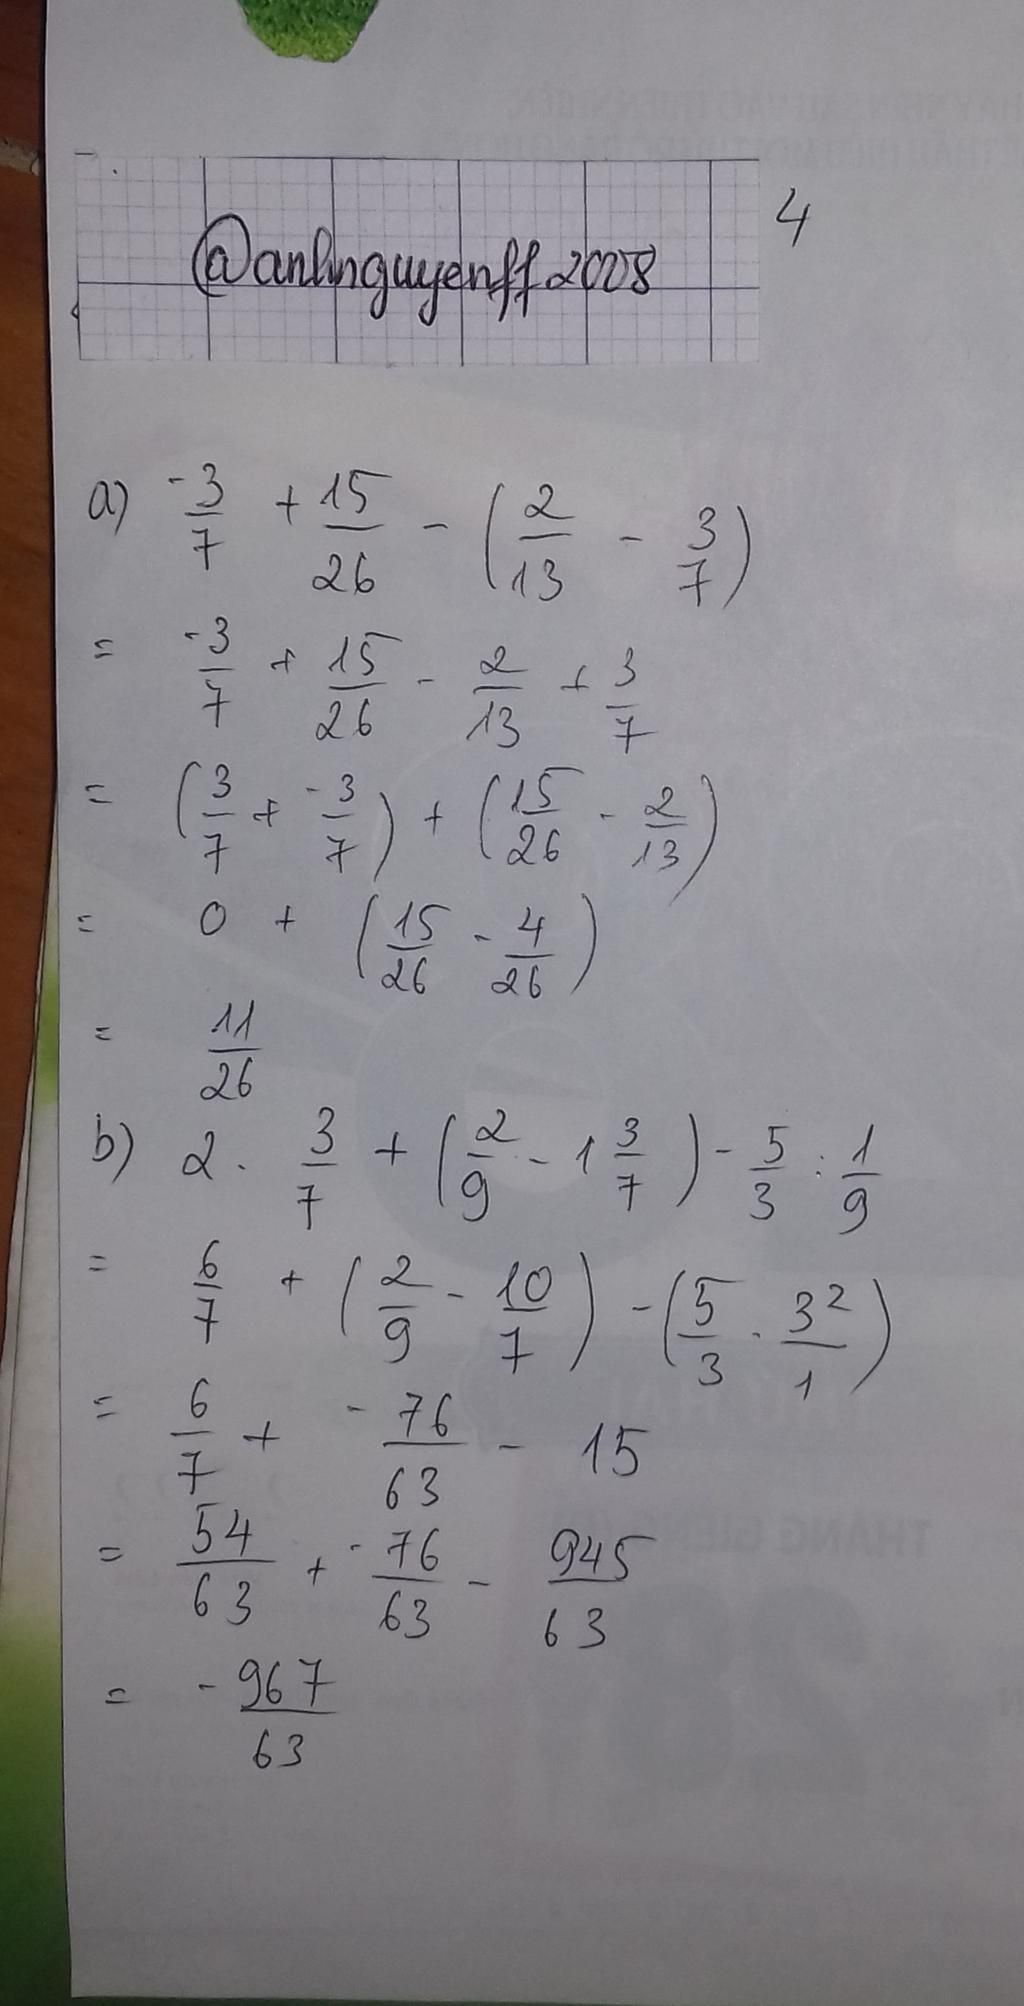 4
@anhnguyenff2008
a) -3/7 + 15/26 - (2/13 - 3/7)
= -3/7 + 15/26 - 2/13 + 3/7
= (3/7 + -3/7) + (15/26 - 2/13)
= 0 + (15/26 - 4/26)
= 11/26
b) 2 . 3/7 + (2/9 - 1 3/7) - 5/3 : 1/9
= 6/7 + (2/9 - 10/7) - (5/3 . 3²/1)
= 6/7 + -76/63 - 15
= 54/63 + -76/63 - 945/63
= -967/63
THÁNG GIÊNG
28